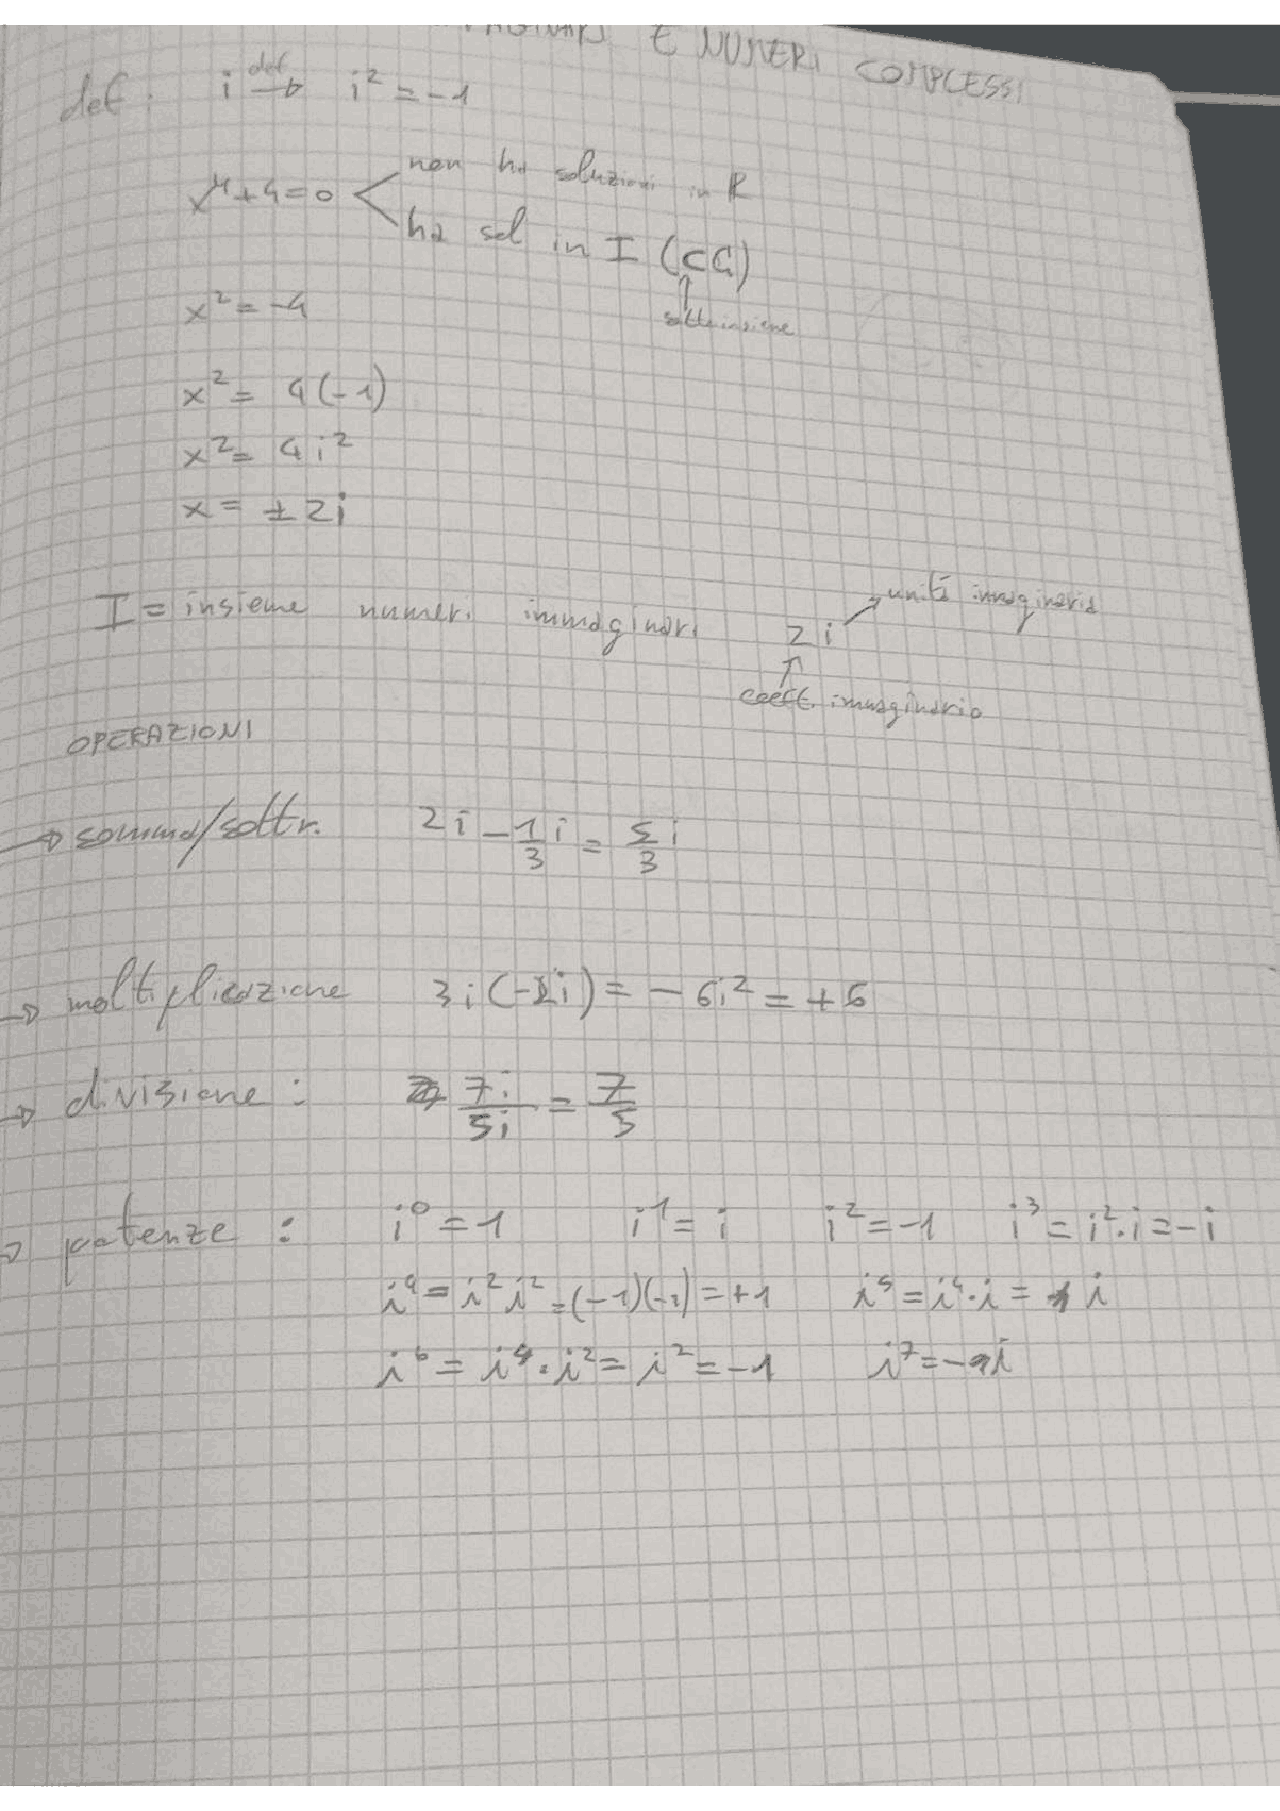 E NUMERI COMPLESSI
def: i def→ i² = -1
x²+4=0 < non ha soluzioni in R
ha sol in I (⊂C)
↑
sottoinsieme
x² = -4
x² = 4(-1)
x² = 4i²
x = ±2i
I = insieme numeri immaginari 2i → unità immaginaria
↑
coeff. immaginario
OPERAZIONI
→ somma/sottr. 2i - 1/3 i = 5/3 i
→ moltiplicazione 3i(-2i) = -6i² = +6
→ divisione: 7i/5i = 7/5
→ potenze: i⁰ = 1 i¹ = i i² = -1 i³ = i²·i = -i
i⁴ = i² i² = (-1)(-1) = +1 i⁵ = i⁴·i = i
i⁶ = i⁴·i² = i² = -1 i⁷ = -i